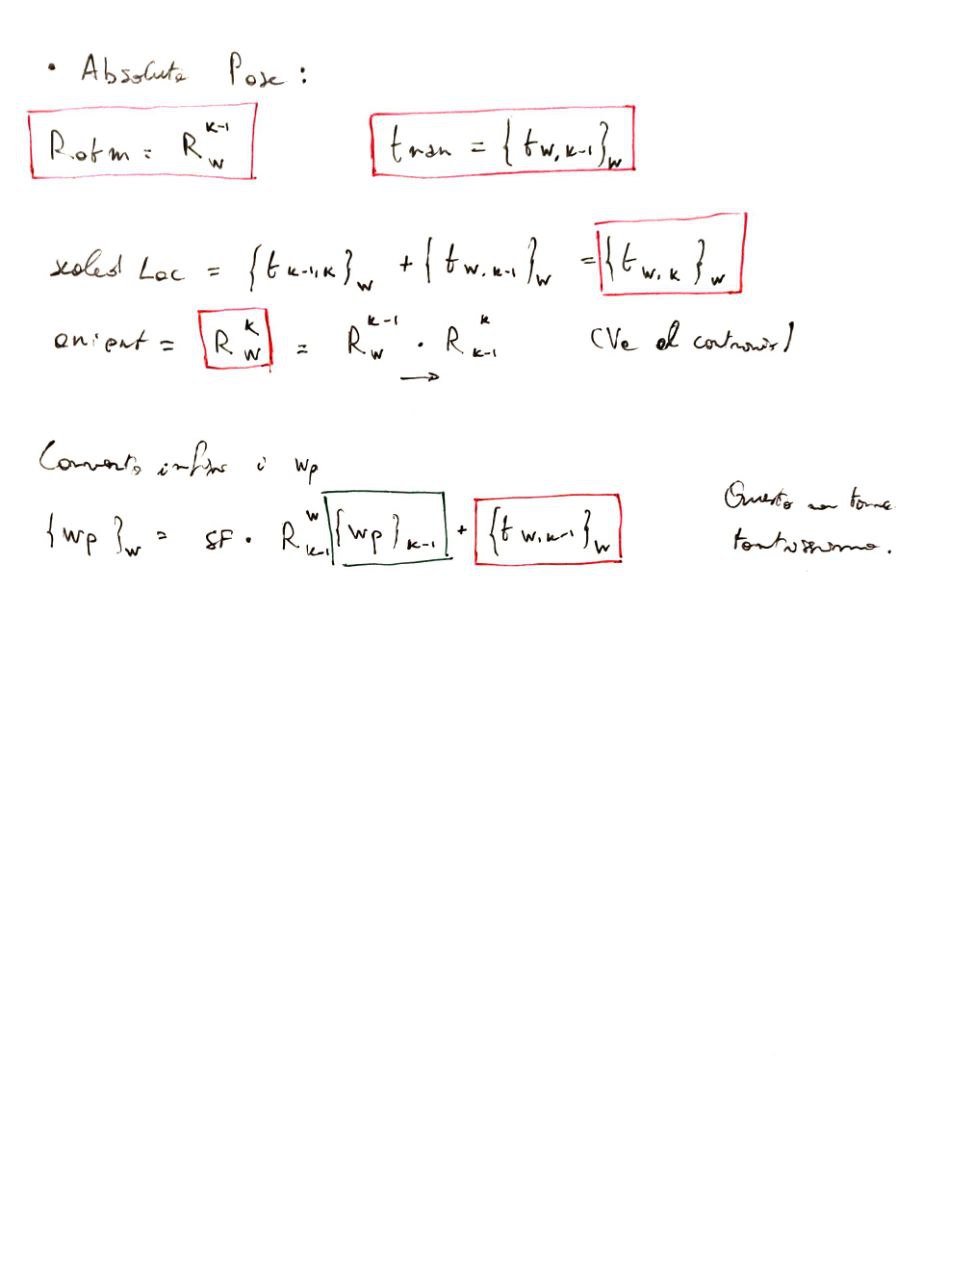 • Absolute Pose :
Rotm = R_w^{k-1} tran = {t_{w,k-1}}_w
scaled Loc = {t_{k-1,k}}_w + {t_{w,k-1}}_w = {t_{w,k}}_w
orient = R_w^k = R_w^{k-1} · R_{k-1}^k (Va al contrario)
→
Converto infine i wp
{wp}_w = SF · R_{k-1}^w {wp}_{k-1} + {t_{w,k-1}}_w
Questo non torna
tantissimo.